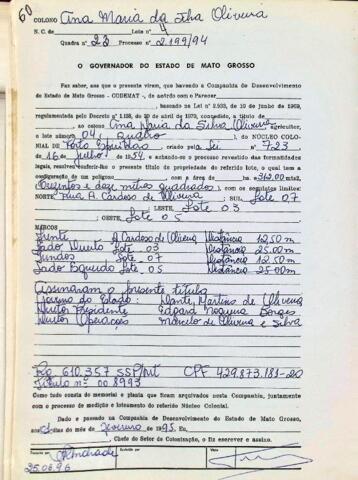 60
COLONO Ana Maria da Silva Oliveira
N. C. de Lote n.º 4
Quadra n.º 23 Processo n.º 2.199/94
O GOVERNADOR DO ESTADO DE MATO GROSSO
Faz saber, aos que a presente virem, que havendo a Companhia de Desenvolvimento
do Estado de Mato Grosso - CODEMAT -, de acôrdo com o Parecer
, baseado na Lei n.º 2.933, de 10 de junho de 1969,
regulamentada pelo Decreto n.º 1.138, de 29 de abril de 1970, concedido, a título de
, ao colono Ana Maria da Silva Oliveira agricultor,
o lote número 04, quatro do NÚCLEO COLO-
NIAL DE Porto Esperidião criado pela Lei n.º 723
de 16 de julho de 1954, e achando-se o processo revestido das formalidades
legais, resolveu conferir-lhe o presente título de propriedade do referido lote, o qual tem a
configuração de um polígono com a área de 312,00 mts2,
Trezentos e doze metros quadrados, com os seguintes limites:
NORTE, Rua A. Cardoso de Oliveira SUL, Lote 07
LESTE, Lote 03
OESTE, Lote 05
MARCOS
Frente A. Cardoso de Oliveira Distância 12,50 m
Lado Direito Lote 03 Distância 25.00 m
Fundos Lote 07 Distância 12.50 m
Lado Esquerdo Lote 05 Distância 25.00 m
Assinaram o presente título
Governo do Estado: Dante Martins de Oliveira
Diretor Presidente Edgard Nogueira Borges
Diretor Operações Marcelo de Oliveira e Silva
RG 610.357 SSP/MT CPF 429.873.181-20
Título nº 00 8993
Como tudo consta do memorial e planta que ficam arquivados nesta Companhia, juntamente
com o processo de medição e loteamento do referido Núcleo Colonial.
Dado e passado na Companhia de Desenvolvimento do Estado de Mato Grosso,
dias do mês de fevereiro de 1995. Eu,
Chefe do Setor de Colonização, o fiz escrever e assino.
Andrade
25.06.96
Visto